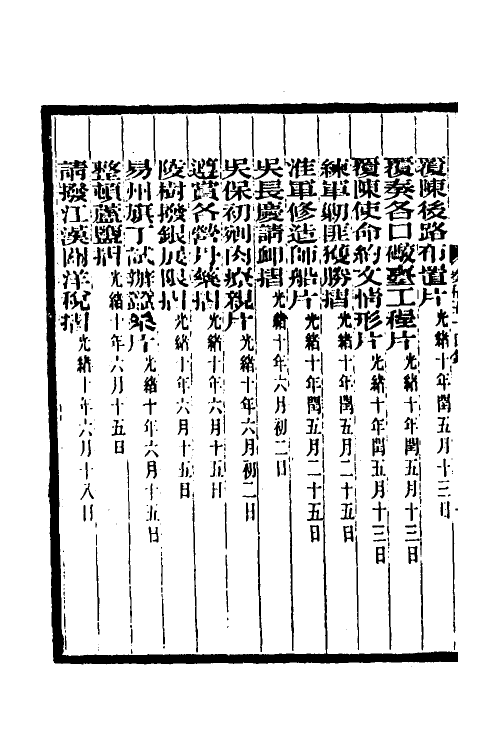 覆陳後路布置片光緒十年閏五月十三日
覆奏各口礮臺工程片光緒十年閏五月十三日
覆陳使命約文情形片光緒十年閏五月十三日
練軍勦匪獲勝摺光緒十年閏五月二十五日
淮軍修造師船片光緒十年閏五月二十五日
吳長慶請卹摺光緒十年六月初二日
吳保初刲肉療親片光緒十年六月初二日
遵賞各營丹藥摺光緒十年六月十五日
陵樹撥銀展限摺光緒十年六月十五日
易州旗丁試辦蠶桑片光緒十年六月十五日
整頓蘆鹽摺光緒十年六月十五日
請撥江漢兩洋稅摺光緒十年六月十八日